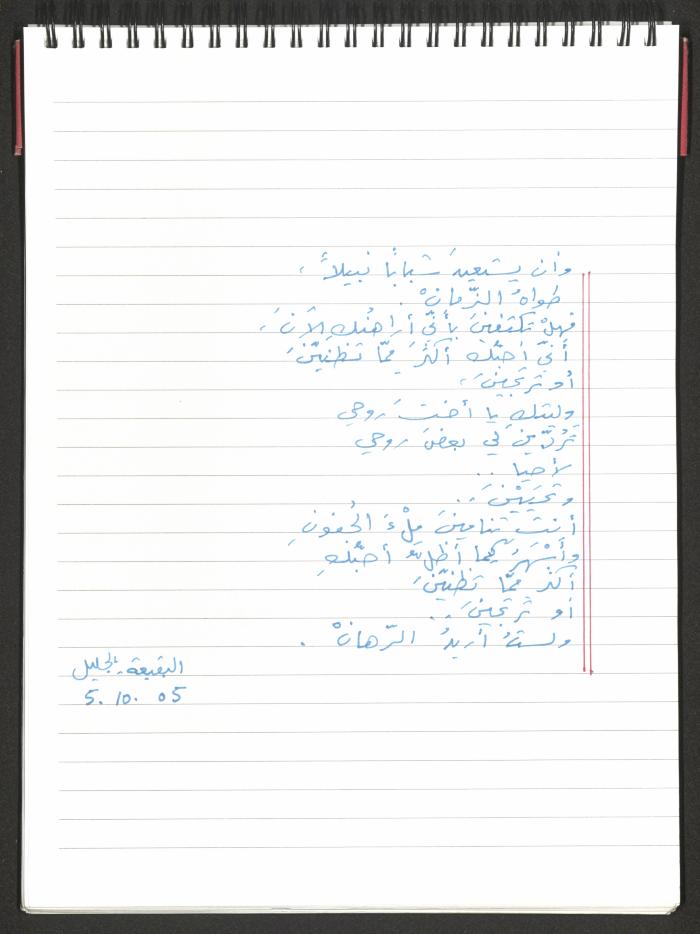 وأن يستعيدَ شبابًا نبيلاً ،
طواهُ الزّمانْ .
فهلْ تكتفينَ بأنّي أراهنُكِ الآنَ ،
أنّي أحبّكِ أكثرَ ممّا تظنّينَ
أو ترتجينَ ،
وليتكِ يا أختَ روحي
تردّينَ لي بعضَ روحي
لأحيا . .
وتحيَيْنَ . .
أنتِ تنامينَ مِلْءَ الجُفونِ
وأَسْهَرُ كيما أظلّ أحبّكِ
أكثر ممّا تظنّينَ
أو ترتجينَ . .
ولستُ أريدُ الرّهانْ .
البقيعة - الجليل
5. 10. 05